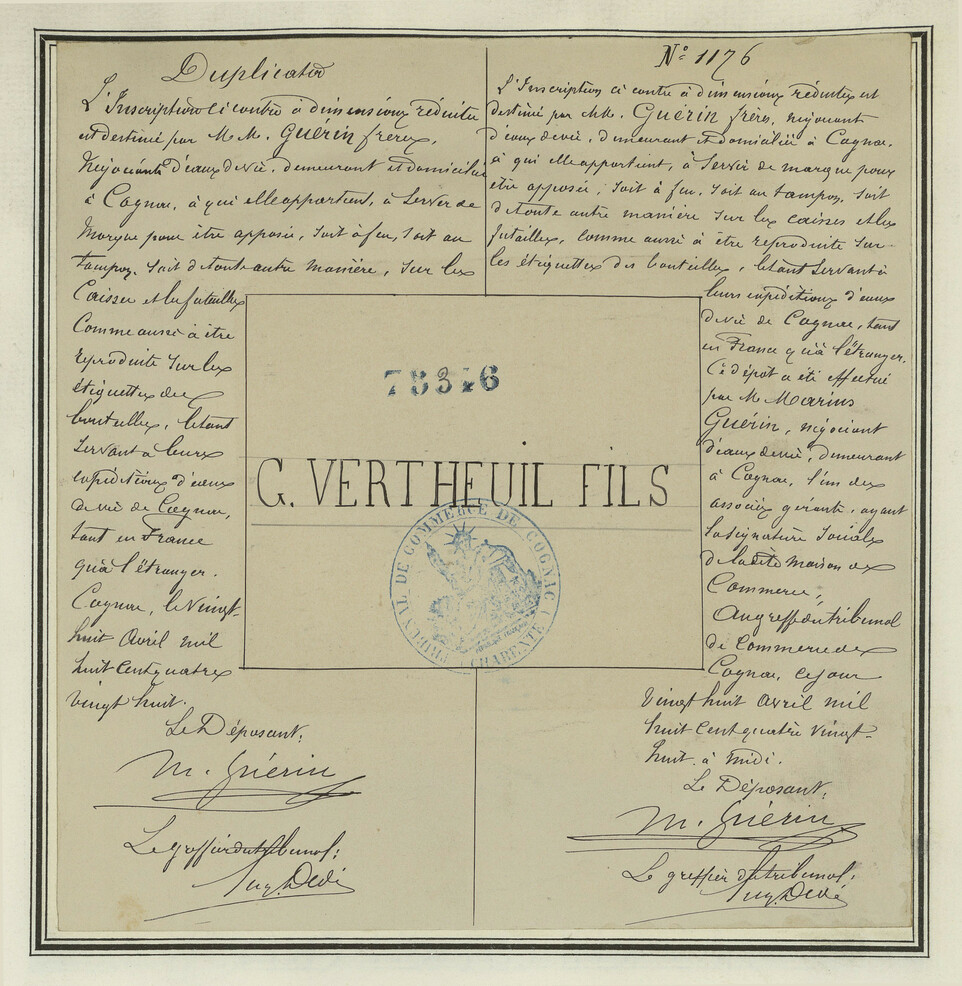 Duplicata
L'Inscription ci contre à dimensions réduites
est destiné par M.M. Guérin frères,
Négociants d'eaux de vie, demeurant et domiciliés
à Cognac, à qui elle appartient, à Servir de
Marque pour être apposée, soit à feu, soit au
tampon, soit de toute autre manière, sur les
Caisses et les futailles
Comme aussi à être
reproduite sur les
étiquettes des
bouteilles, le tout
servant à leurs
expéditions d'eaux
de vie de Cognac,
tant en France
qu'à l'étranger.
Cognac, le Vingt-
huit Avril mil
huit cent quatre
vingt huit.
Le Déposant:
M. Guérin
Le greffier du tribunal:
N° 1176
L'Inscription ci contre à dimensions réduites est
destiné par MM. Guérin frères, négociants
d'eaux de vie, demeurant et domiciliés à Cognac,
à qui elle appartient, à Servir de marque pour
être apposée, soit à feu, soit au tampon, soit
de toute autre manière sur les caisses et les
futailles, comme aussi à être reproduite sur
les étiquettes des bouteilles, le tout servant à
leurs expéditions d'eaux
de vie de Cognac, tant
en France qu'à l'étranger.
Ce dépôt a été effectué
par M. Marius
Guérin, négociant
d'eaux de vie, demeurant
à Cognac, l'un des
associés gérants, ayant
la signature sociale
de ladite maison de
Commerce,
Au greffe du tribunal
de Commerce de
Cognac, ce jour
Vingt huit Avril mil
huit cent quatre vingt-
huit à midi.
Le Déposant:
M. Guérin
Le greffier du tribunal:
G. VERTHEUIL FILS
TRIBUNAL DE COMMERCE DE COGNAC (CHARENTE)